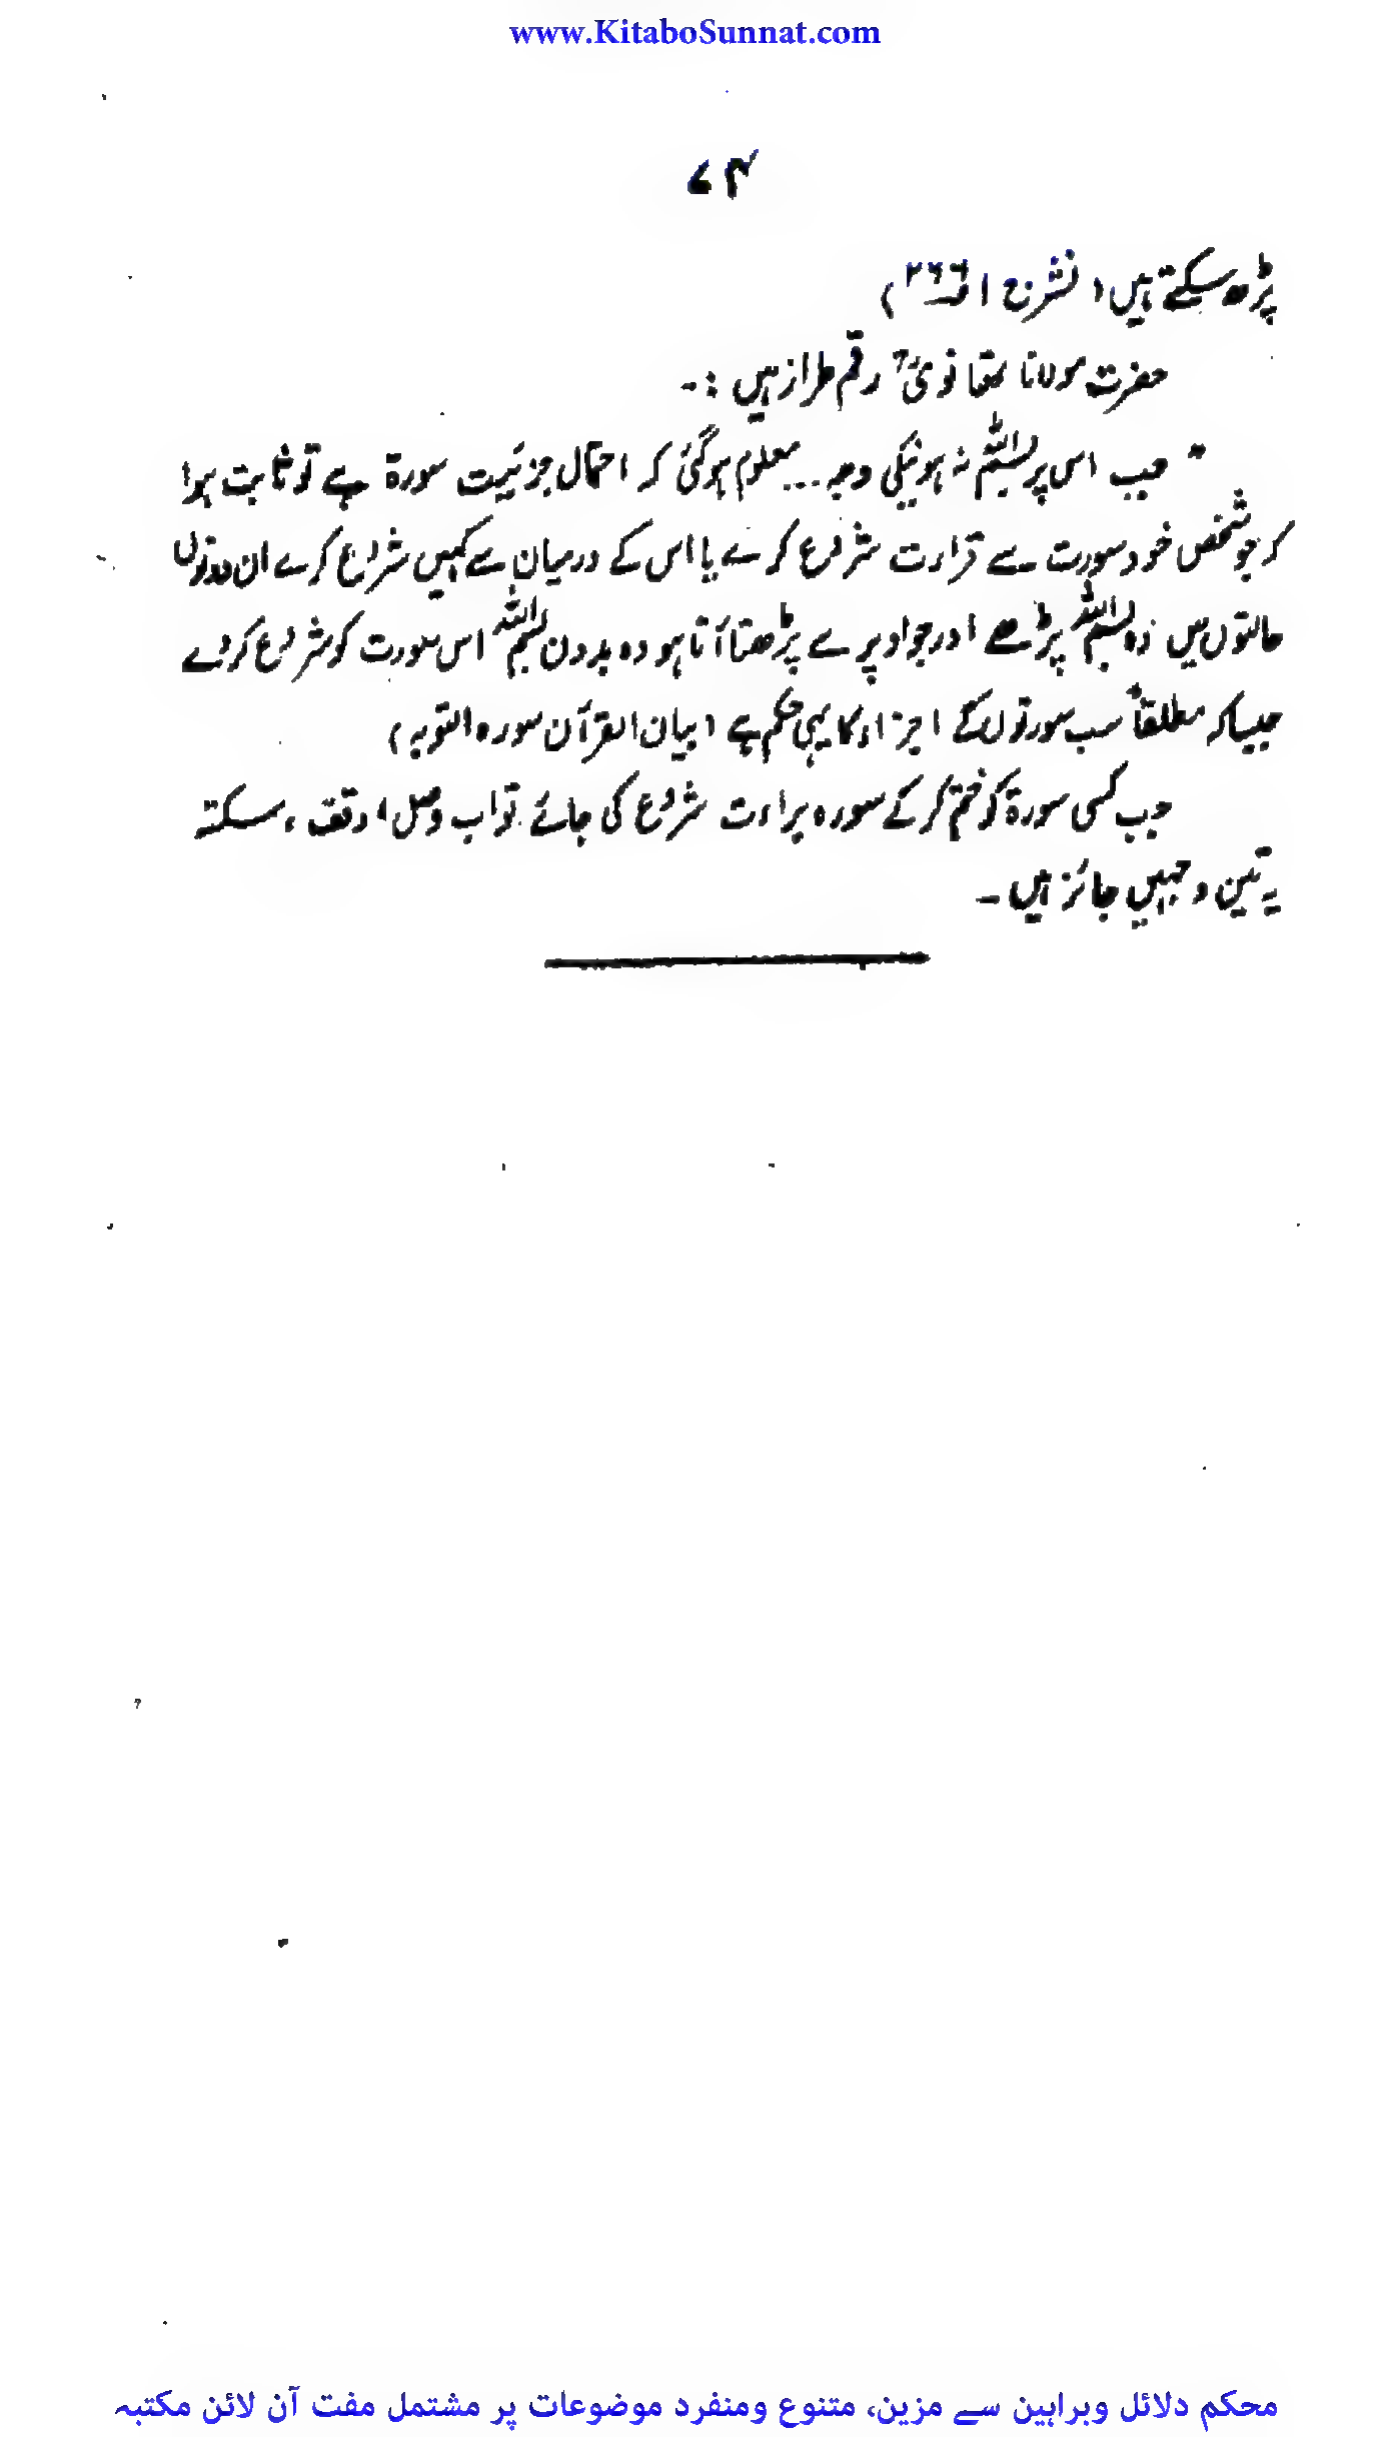 www.KitaboSunnat.com
۷۴
پڑھ سکتے ہیں (نشر ج ۱ ص۲۶۶)
حضرت مولانا تھانویؒ رقم طراز ہیں :-
" جب اس پر بسم اللہ نہ ہونیکی وجہ... معلوم ہوگئی کہ احتمال جزئیت سورۃ ہے تو ثابت ہوا
کہ جو شخص خود سورت سے قراءت شروع کرے یا اس کے درمیان سے کہیں شروع کرے ان دونوں
حالتوں میں وہ بسم اللہ پڑھے اور جو اوپر سے پڑھتا آتا ہو وہ بدون بسم اللہ اس سورت کو شروع کردے
جیسا کہ مطلقاً سب سورتوں کے اجزاء کا یہی حکم ہے (بیان القرآن سورہ التوبہ)
جب کسی سورۃ کو ختم کر کے سورہ براءت شروع کی جائے تو اب وصل، وقف، سکتہ
یہ تین وجہیں جائز ہیں ۔
محکم دلائل وبراہین سے مزین، متنوع ومنفرد موضوعات پر مشتمل مفت آن لائن مکتبہ